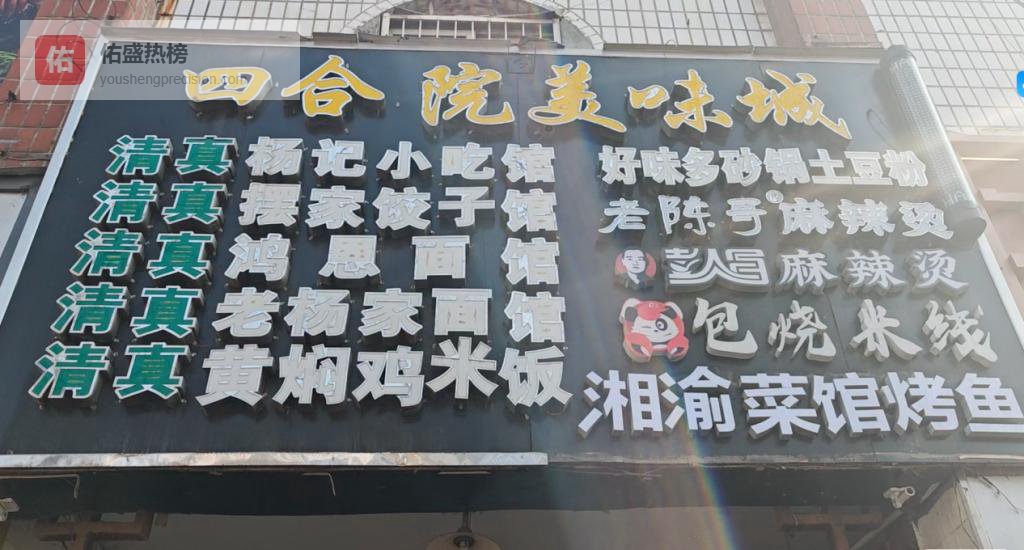 佑
佑盛热榜
youshengprecision.com
四合院美味城
清真 杨记小吃馆
清真 摆家饺子馆
清真 鸿思面馆
清真 老杨家面馆
清真 黄焖鸡米饭
好味多砂锅土豆粉
老陈号®麻辣烫
麻辣烫
包烧米线
湘渝菜馆烤鱼